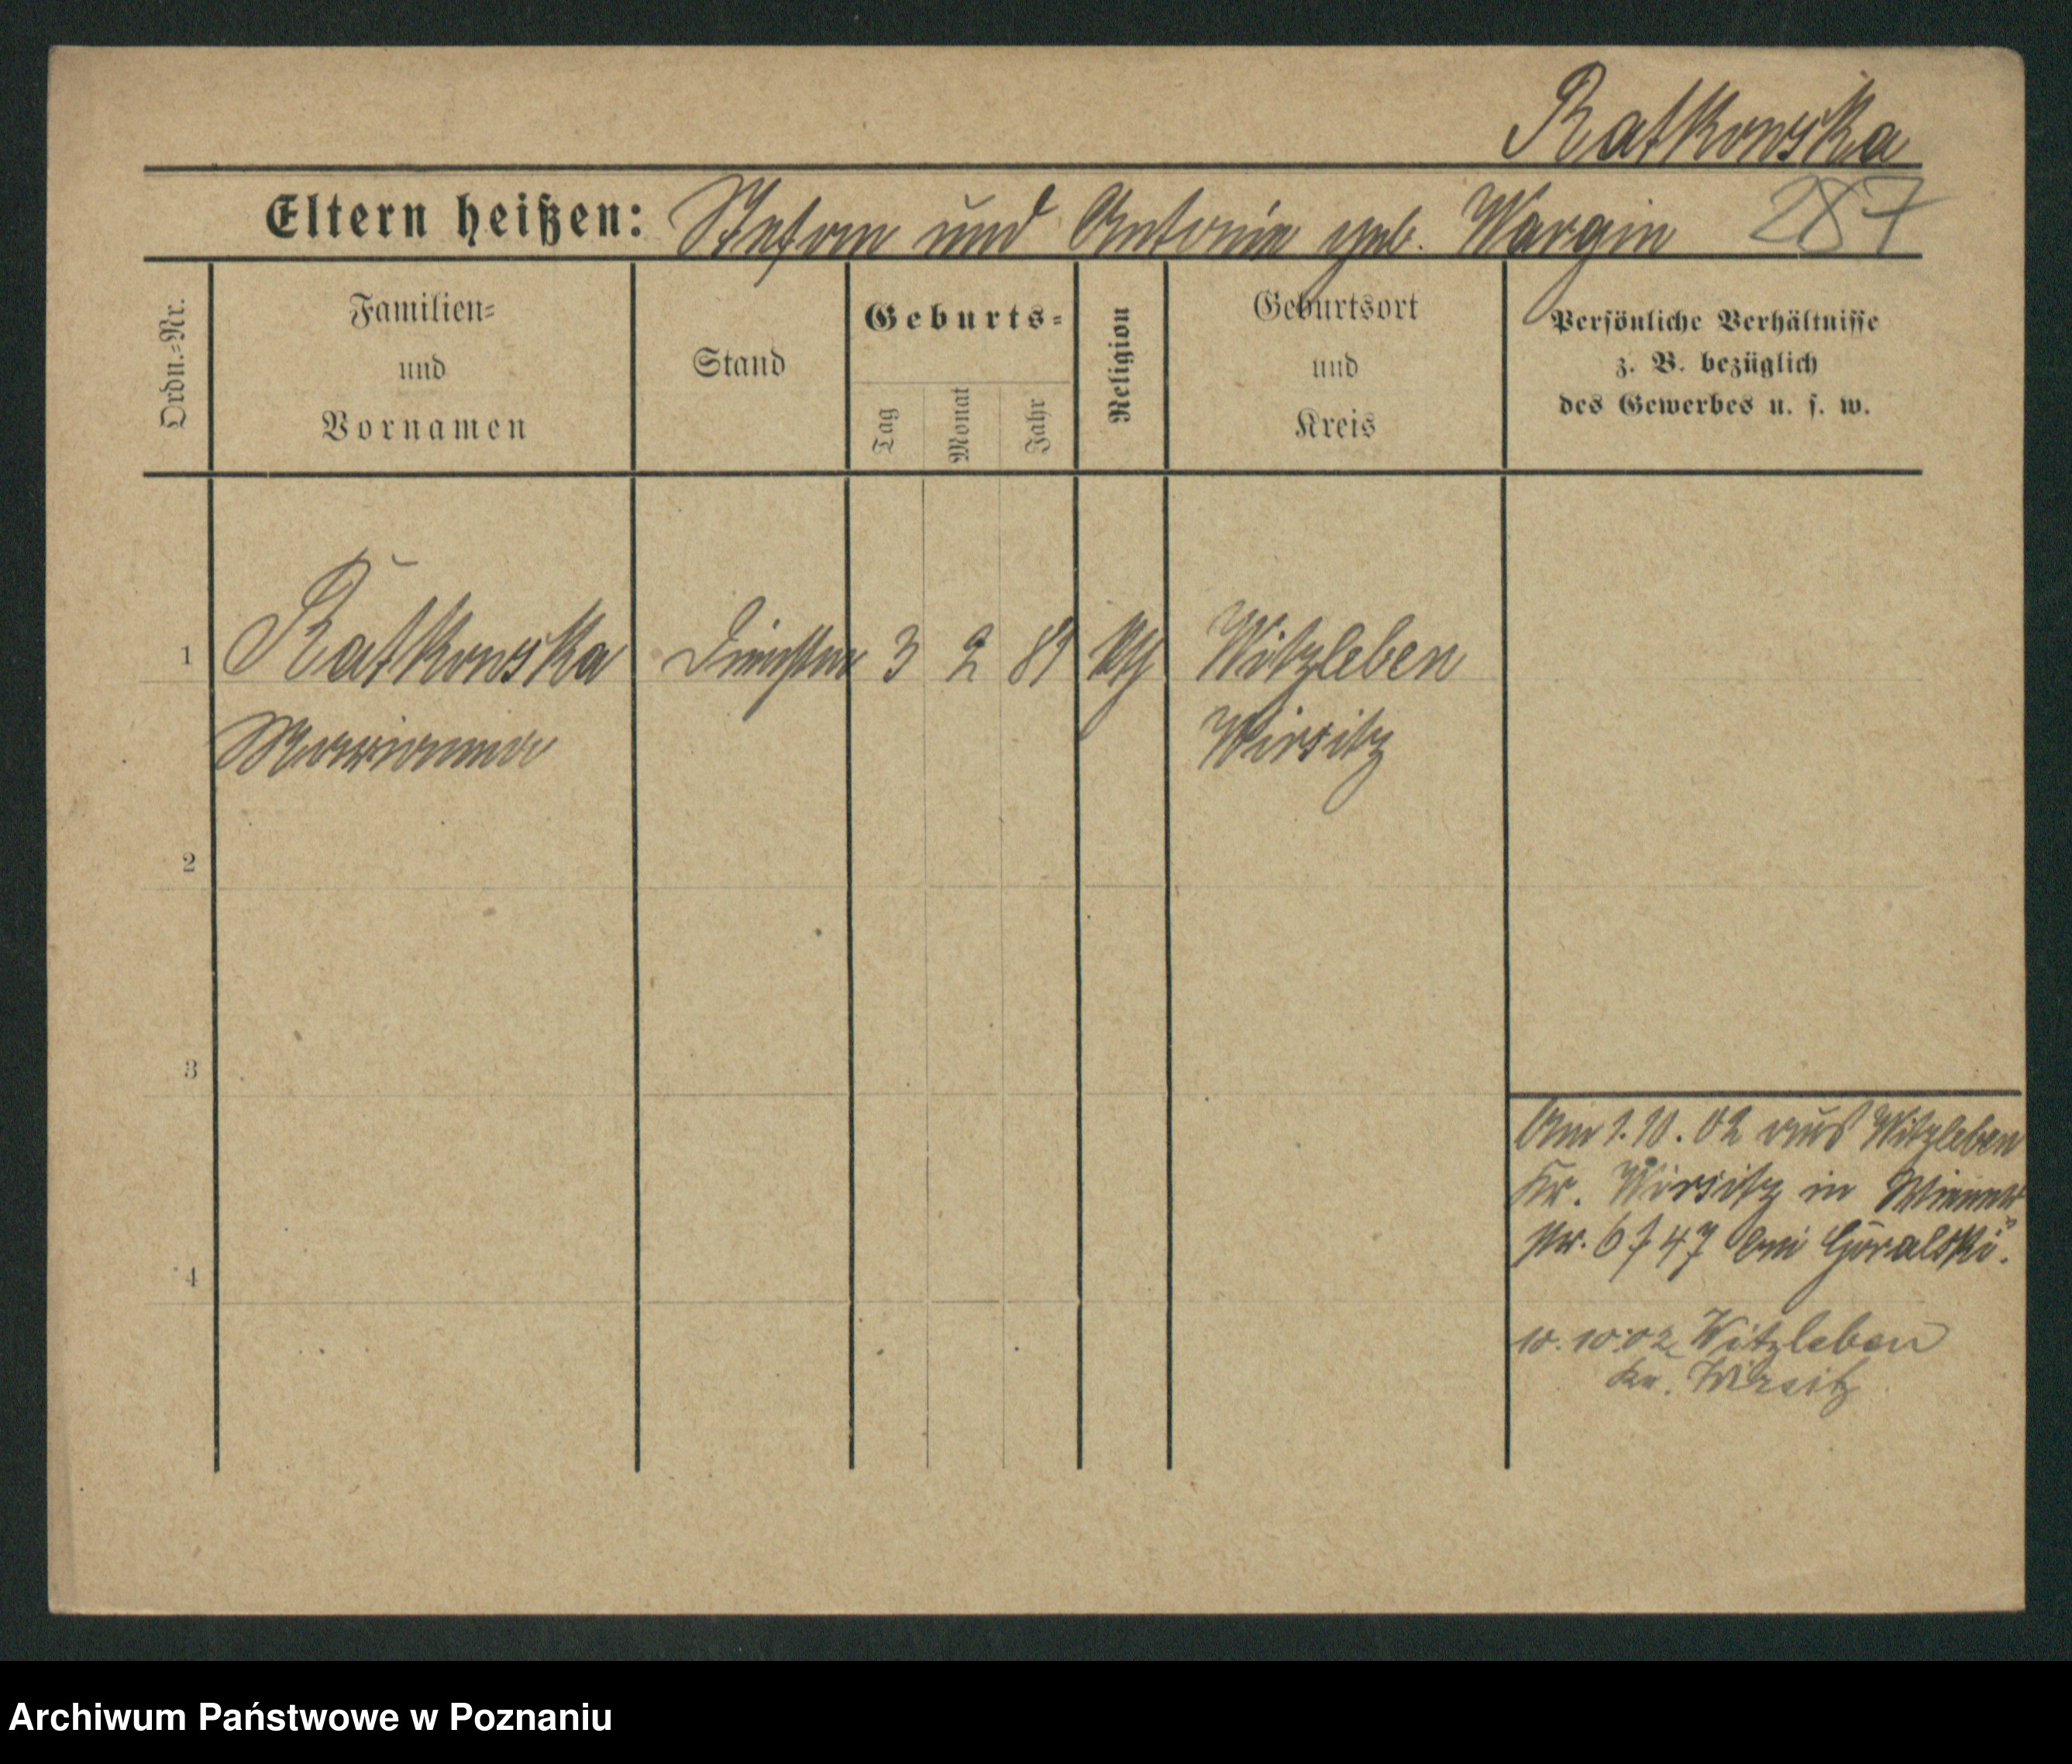 Ratkowska
Eltern heißen: Stefan und Antonie geb. Wargin 287
Ordn.-Nr.
Familien-
und
Vornamen
Stand
Geburts-
Tag
Monat
Jahr
Religion
Geburtsort
und
Kreis
Persönliche Verhältnisse
z. B. bezüglich
des Gewerbes u. s. w.
1 Ratkowska 3 2 81 kth Witzleben
Marianna Wirsitz
2
3
4
Am 1.10.02 aus Witzleben
Kr. Wirsitz in
Nr. 6/47 bei Góralski.
10.10.02 Witzleben
Kr. Wirsitz
Archiwum Państwowe w Poznaniu